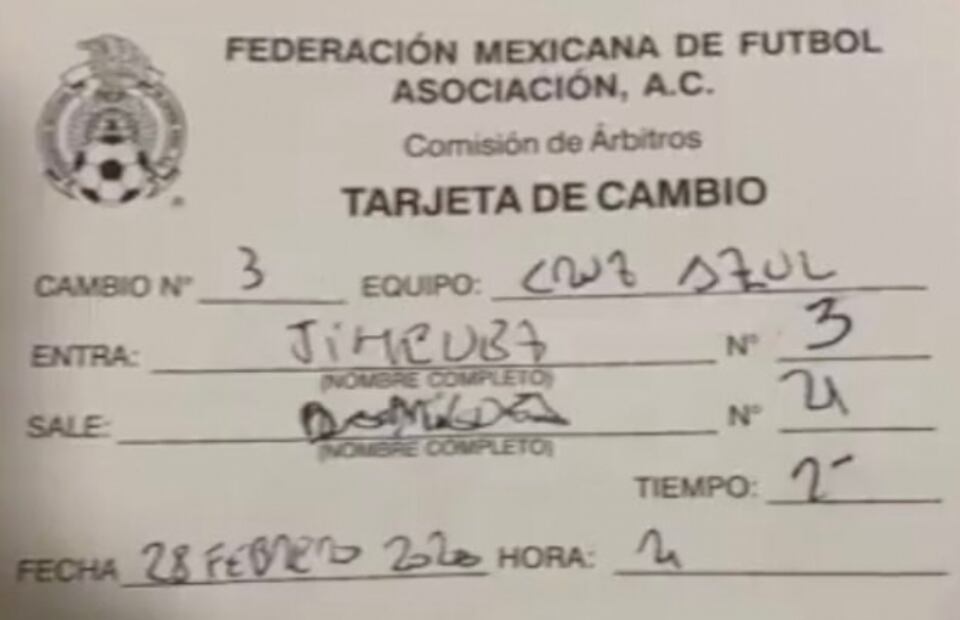 FEDERACIÓN MEXICANA DE FUTBOL
ASOCIACIÓN, A.C.
Comisión de Árbitros
TARJETA DE CAMBIO
CAMBIO N° 3 EQUIPO: CRUZ AZUL
ENTRA: N° 3
(NOMBRE COMPLETO)
SALE: N° 21
(NOMBRE COMPLETO)
TIEMPO: 2
FECHA 28 FEBRERO 2020 HORA: 21